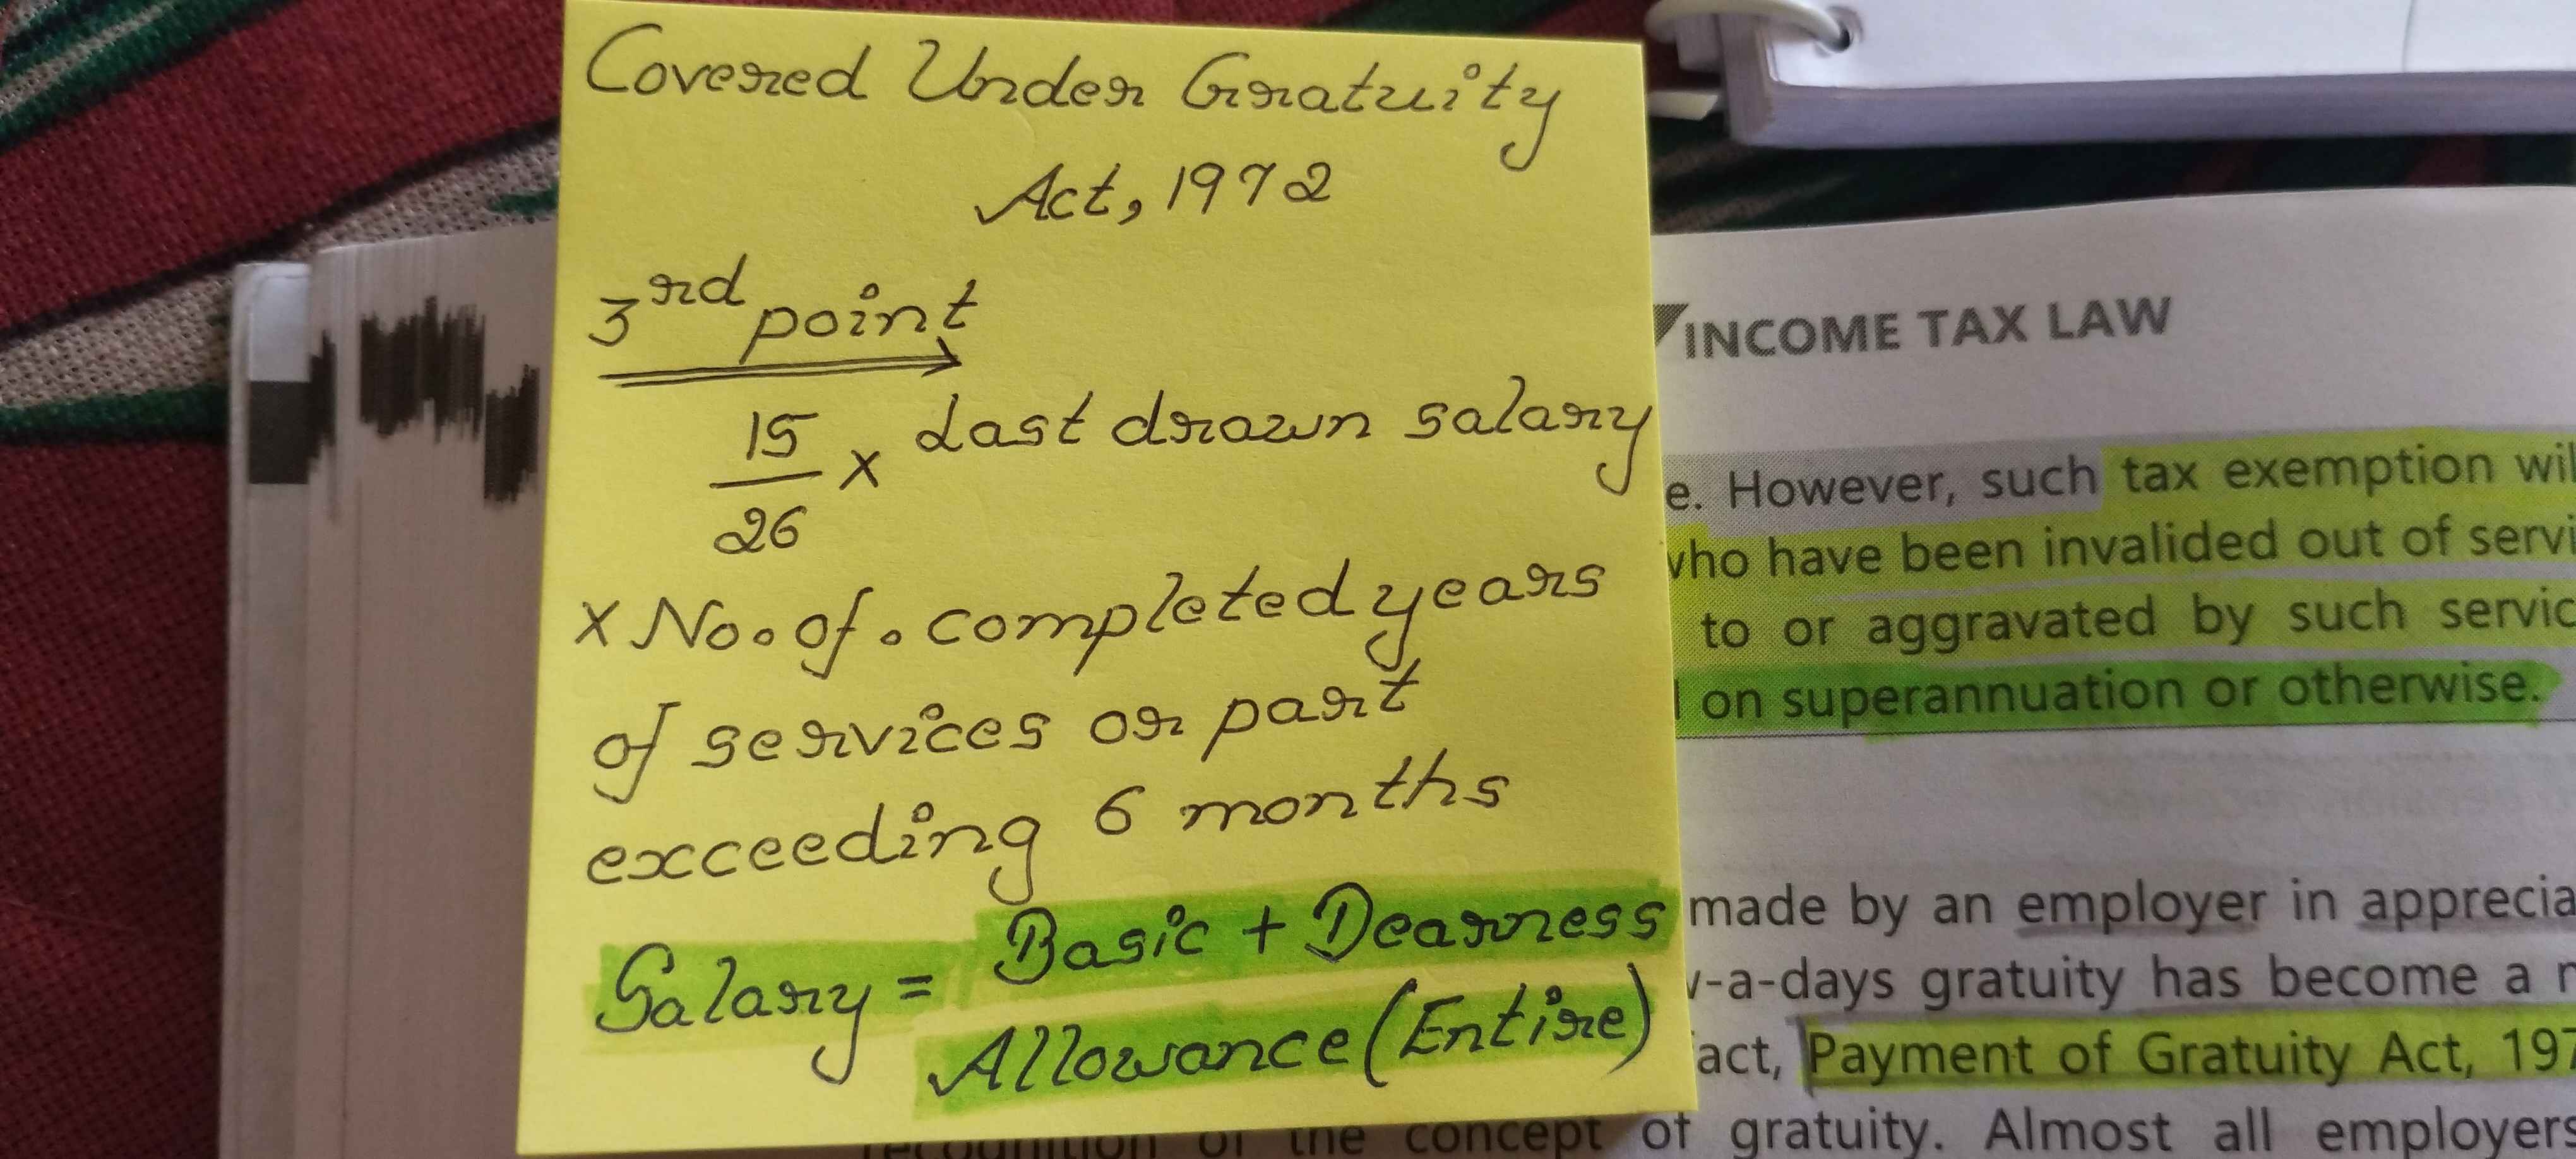 Covered Under Gratuity
Act, 1972
3rd point
15/26 × Last drawn salary
× No. of. completed years
of services or part
exceeding 6 months
Salary = Basic + Dearness
Allowance (Entire)
INCOME TAX LAW
e. However, such tax exemption wil
who have been invalided out of servi
to or aggravated by such servic
on superannuation or otherwise.
made by an employer in apprecia
-a-days gratuity has become a
act, Payment of Gratuity Act, 197
recognition of the concept of gratuity. Almost all employers